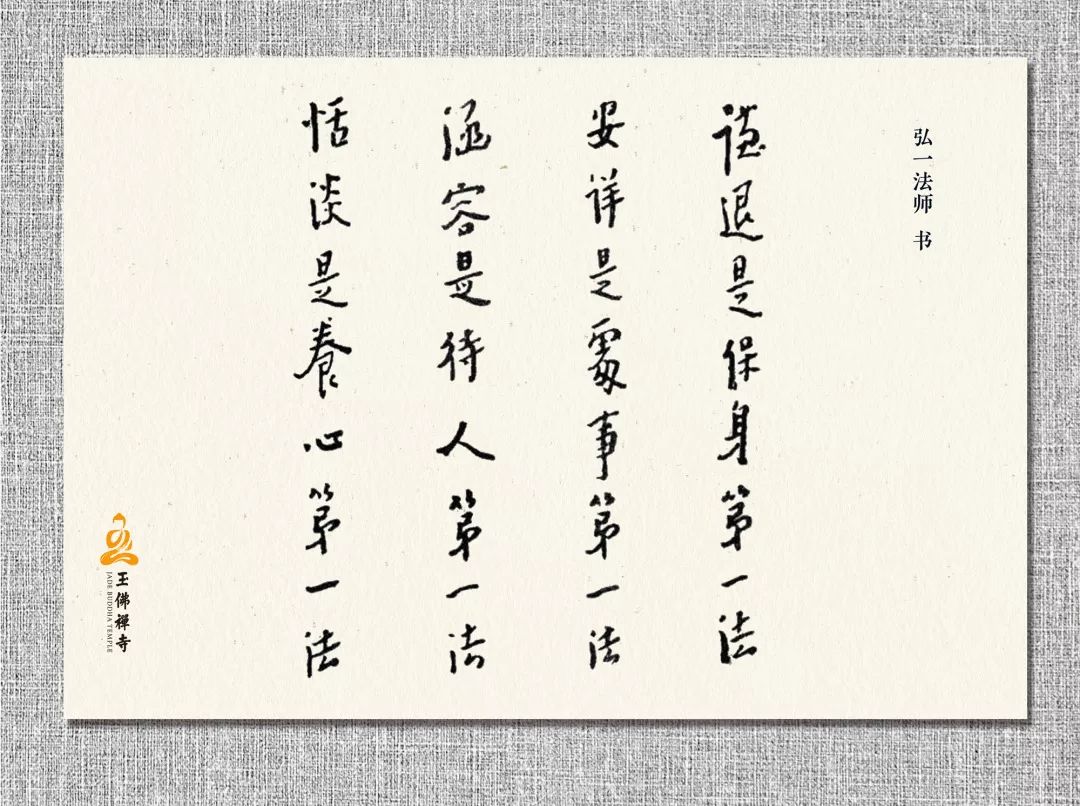 弘一法师 书
谦退是保身第一法
安详是處事第一法
涵容是待人第一法
恬淡是養心第一法
玉佛禅寺
JADE BUDDHA TEMPLE